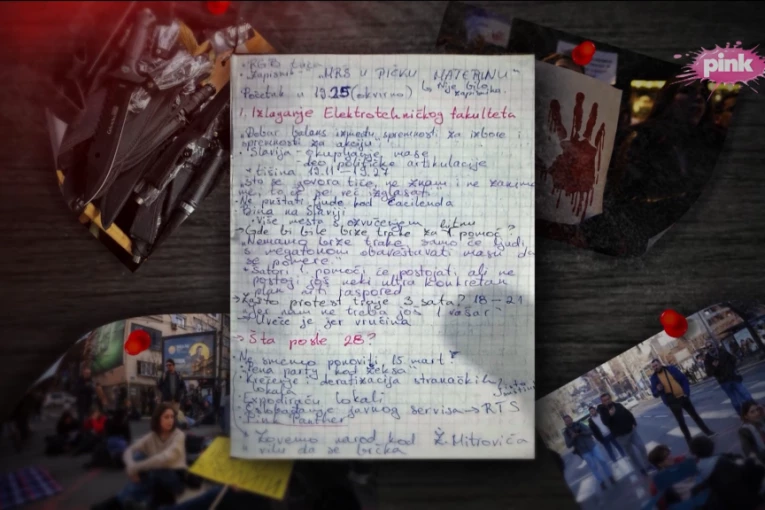 pink
"MRŠ U PIČKU MATERINU"
Početak u 1925 (okvirno) Nije bilo zapisnika.
1. Izlaganje Elektrotehničkog fakulteta
Dobar balans između spremnosti za izbore i
spremnosti za akciju
Slavija - okupljanje mase
- deo političke artikulacije
tišina 19.11 - 19.27
Što se govora tiče, ne znam i ne zanima
Ne puštati ljude kod Ćacilenda
Bina na Slaviji
Više mesta s ozvučenjem
Gde bi bile brze trake za 1. pomoć?
"Nemamo brze trake, samo će ljudi
s megafonom obaveštavati masu da
se pomere."
Šatori 1. pomoći će postojati, ali ne
postoji još neki ultra konkretan
plan raspored
Zašto protest traje 3 sata? 18 - 21
"Jer nam ne treba još 1 vašar"
Uveče je jer vrućina
Šta posle 28?
Ne smemo ponoviti 15. mart
"Pena party kod Žeksa"
Krečenje + deratizacija stranačkih
lokala
javnog servisa → RTS
Pink Panther
Zovemo narod kod Ž. Mitrovića
vilu da se brčka